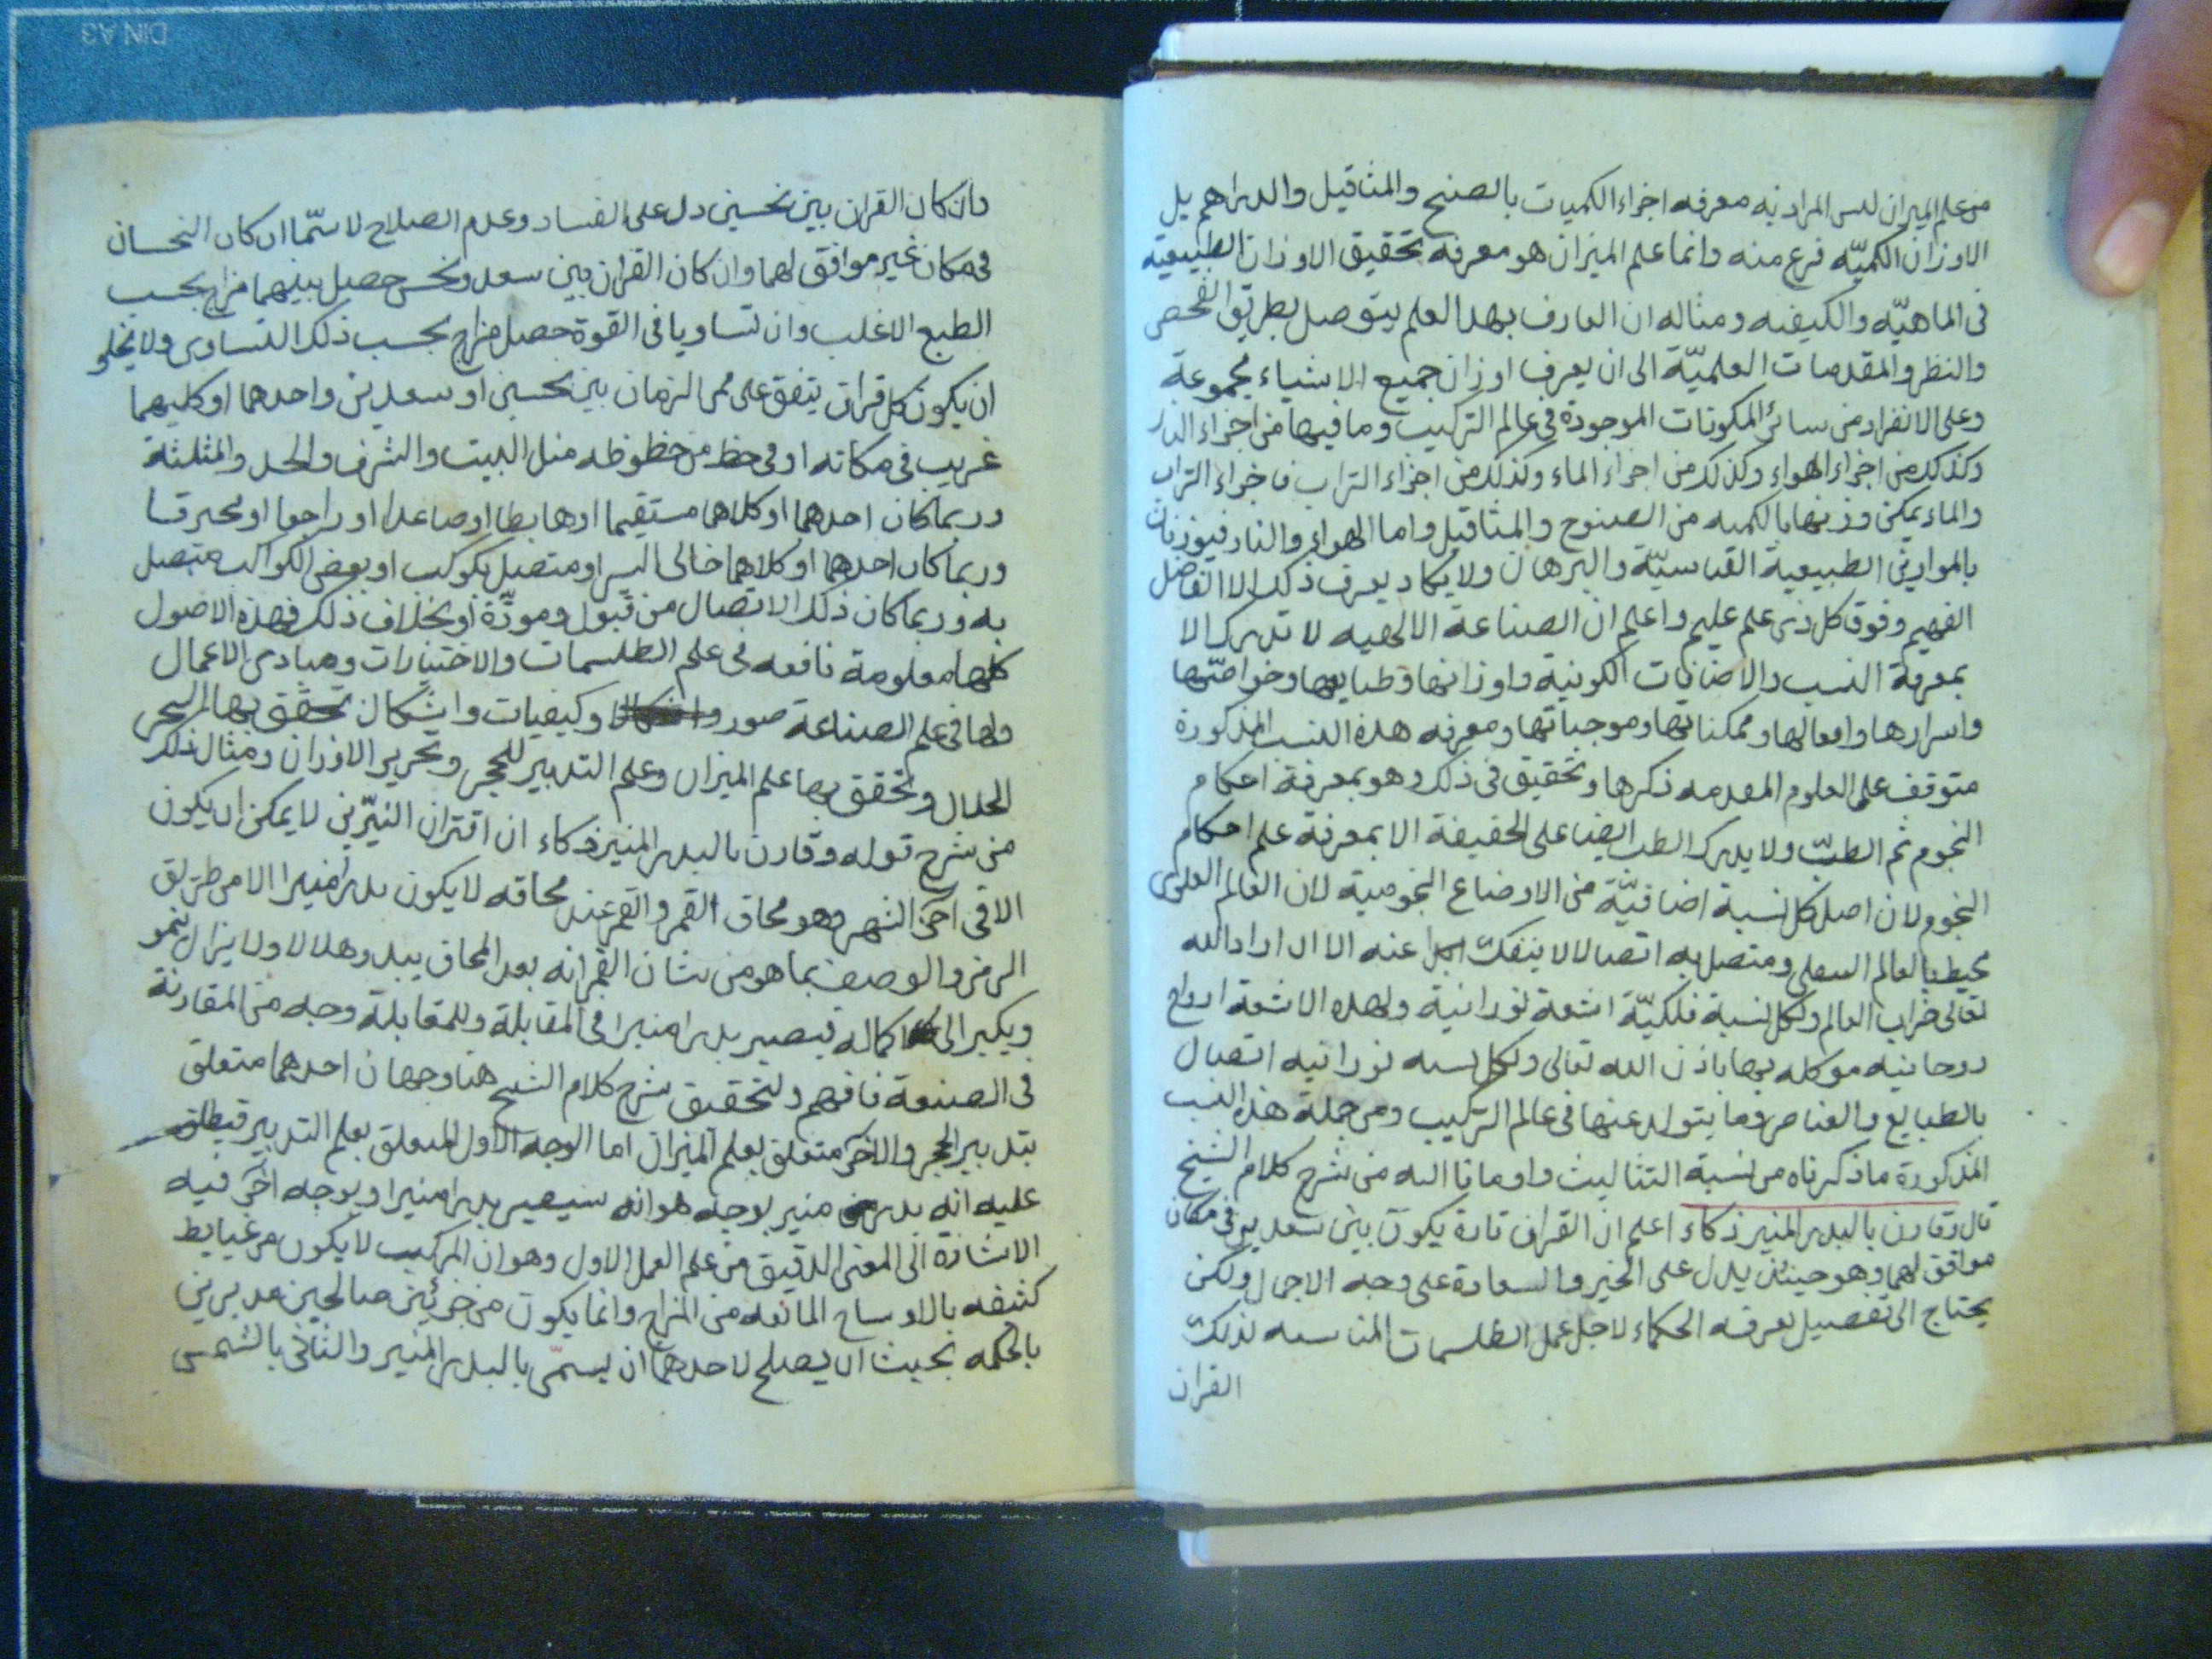 من علم الميزان ليس المراد به معرفه اجزاء الكميات بالصنج والمثاقيل والدراهم بل
الاوزان الكميّه فرع منه وانما علم الميزان هو معرفة تحقيق الاوزان الطبيعية
فى الماهيّه والكيفيه ومثاله ان العارف بهذا العلم يتوصل بطريق الفحص
والنظر والمقدمات العلميّة الى ان يعرف اوزان جميع الاشياء مجموعة
وعلى الانفراد من سائر المكونات الموجودة فى عالم التركيب وما فيها من اجزاء النار
وكذلك من اجزاء الهواء وكذلك من اجزاء الماء وكذلك من اجزاء التراب فاجزاء التراب
والماء يمكن وزنها بالكميه من الصنوج والمثاقيل واما الهواء والنار فيوزنان
بالموازين الطبيعية القياسيّة والبرهان ولا يكاد يعرف ذلك الا الفاضل
الفهيم وفوق كل ذى علم عليم واعلم ان الصناعة الالهيه لا تدرك الا
بمعرفة النسب والاضافات الكونية واوزانها وطبايعها وخواصّها
واسرارها وافعالها وممكناتها وموجباتها ومعرفه هذه النسب المذكورة
متوقف على العلوم المقدمه ذكرها وتحقيق فى ذلك وهو بمعرفة احكام
النجوم ثم الطبّ ولا يدرك الطب ايضا على الحقيقة الا بمعرفة علم احكام
النجوم ولان اصل كل نسبة اضافيّة من الاوضاع النجومية لان العالم العلوى
محيط بالعالم السفلى ومتصل به اتصالا لا ينفكّ ابدا عنه الا ان اراد الله
تعالى خراب العالم ولكل نسبة فلكيّة اشعة نورانية ولهذه الاشعة ارواح
روحانيه موكله بها باذن الله تعالى ولكل نسبه نورانيه اتصال
بالطبايع والعناصر وما يتولد عنها فى عالم التركيب ومن جملة هذه النسب
المذكورة ما ذكرناه من نسبة التثاليث واومانا اليه من شرح كلام الشيخ
قال وقارن بالبدر المنير ذكاء اعلم ان القران تارة يكون بين سعدين فى مكان
موافق لهما وهو حينئذ يدل على الخير والسعادة على وجه الاجمال ولكن
يحتاج الى تفصيل يعرفه الحكماء لاجل عمل الطلسمات المناسبه لذلك
القران
وان كان القران بين نحسين دل على الفساد وعدم الصلاح لا سيّما ان كان النحسان
فى مكان غير موافق لهما وان كان القران بين سعد ونحس حصل بينهما مزاج بحسب
الطبع الاغلب وان تساويا فى القوة حصل مزاج بحسب ذلك التساوى ولا يخلو
ان يكون كل قران يتفق على ممر الزمان بين نحسين او سعدين واحدهما او كليهما
غريب فى مكانه او فى حظ من حظوظه مثل البيت والشرف والحد والمثلثة
وربما كان احدهما او كلاهما مستقيما او هابطا او صاعدا او راجعا او محترقا
وربما كان احدهما او كلاهما خالى السير او متصل بكوكب او بعض الكواكب متصل
به وربما كان ذلك الاتصال من قبول ومودّة او بخلاف ذلك فهذه الاصول
كلها معلومة نافعه فى علم الطلسمات والاختيارات ومبادى الاعمال
ولها فى علم الصناعة صور وكيفيات واشكال تحقق بها السحر
الحلال وتحقق بها علم الميزان وعلم التدبير للحجر وتحرير الاوزان ومثال ذلك
من شرح قوله وقارن بالبدر المنير ذكاء ان اقتران النيّرين لا يمكن ان يكون
الا فى آخر الشهر وهو محاق القمر والقمر عند محاقه لا يكون بدرا منيرا الا من طريق
الرمز والوصف بما هو من شان القمر انه بعد المحاق يبدو هلالا ولا يزال ينمو
ويكبر الى كماله فيصير بدرا منيرا فى المقابلة وللمقابلة وجه من المقارنة
فى الصنعة فافهم ولتحقيق شرح كلام الشيخ هنا وجهان احدهما متعلق
بتدبير الحجر والاخر متعلق بعلم الميزان اما الوجه الاول المتعلق بعلم التدبير فيطلق
عليه انه بدر منير بوجه هو انه سيصير بدرا منيرا وبوجه آخر فيه
الاشارة الى المعنى الدقيق من علم العمل الاول وهو ان المركب لا يكون من غبايط
كثفه بالاوساخ المانعه من المزاج وانما يكون من جزئين صالحين مدبرين
بالحكمه بحيث ان يصلح لاحدهما ان يسمّى بالبدر المنير والثانى بالشمس